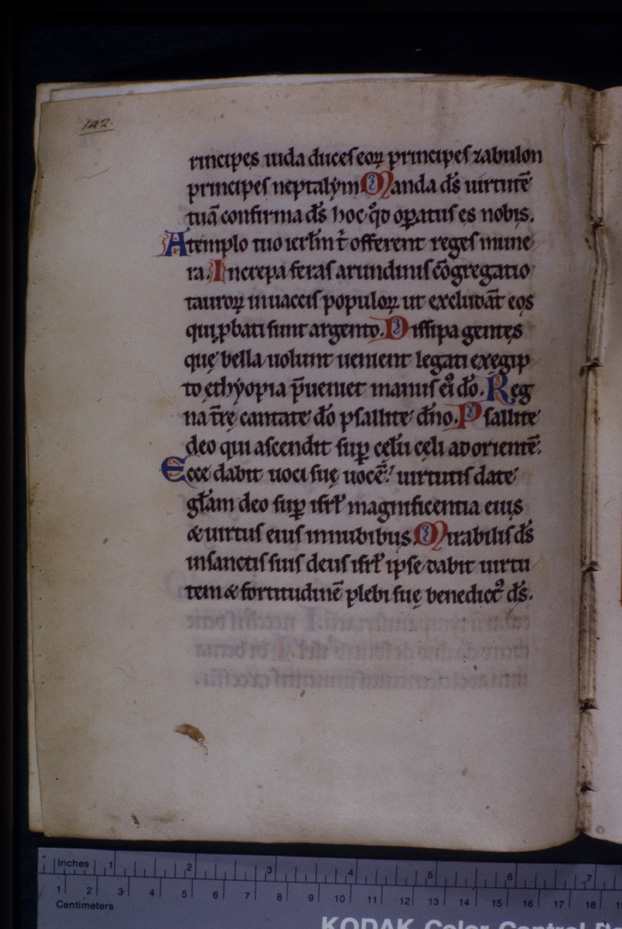 142
rincipes iuda duces eoꝝ principes zabulon
principes neptalym Manda dẜ uirtutē
tuā confirma dẜ hoc qđ opatus es nobis.
A templo tuo ierłm t̄ offerent reges mune
ra. Increpa feras arundinis cōgregatio
tauroꝝ in uaccis populoꝝ ut excludāt eos
qui ꝓbati sunt argento. Dissipa gentes
quę bella uolunt uenient legati ex egip
to ęthyopia p̄ueniet manus eiꝰ dō. Reg
na tr̄ę cantate dō psallite dn̄o. Psallite
deo qui ascendit sup cęlū cęli ad orientē.
Ecce dabit uoci suę uocē uirtutis date
głam deo sup isrł magnificentia eius
& uirtus eius in nubibus Mirabilis dẜ
in sanctis suis deus isrł ipse dabit uirtu
tem & fortitudinē plebi suę benedictꝰ dẜ.
Inches 1 2 3 4 5 6 7
1 2 3 4 5 6 7 8 9 10 11 12 13 14 15 16 17 18
Centimeters
KODAK Color Control